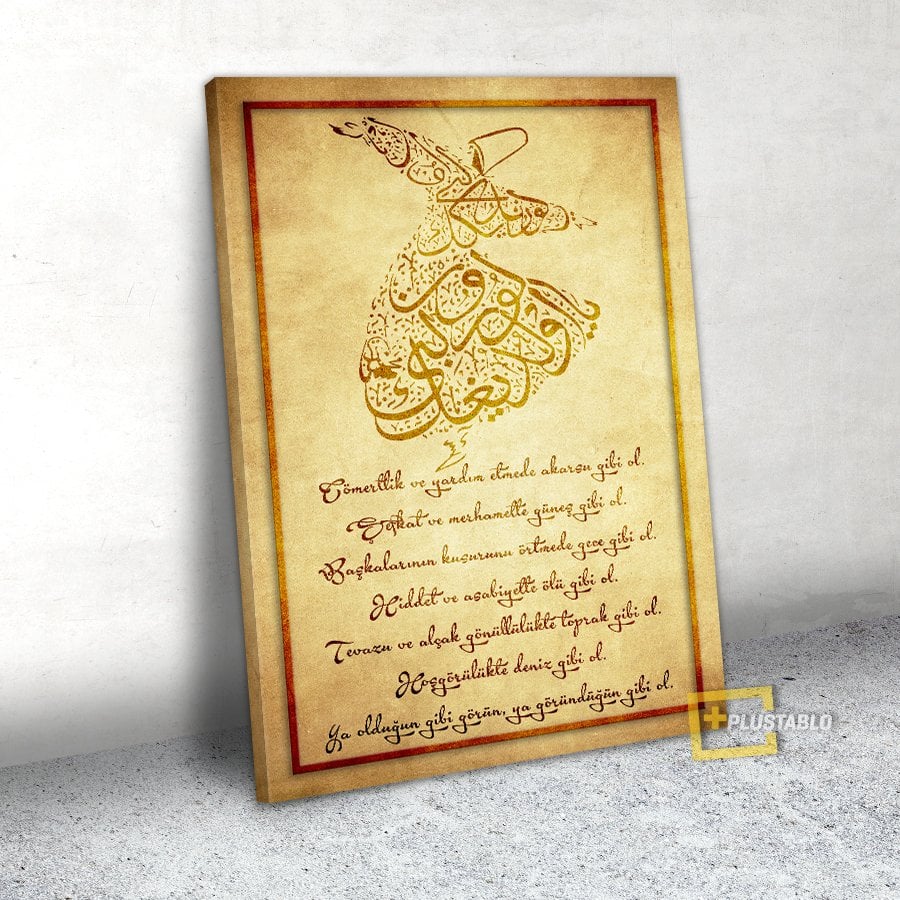 Cömertlik ve yardım etmede akarsu gibi ol.
Şefkat ve merhamette güneş gibi ol.
Başkalarının kusurunu örtmede gece gibi ol.
Hiddet ve asabiyette ölü gibi ol.
Tevazu ve alçak gönüllülükte toprak gibi ol.
Hoşgörülükte deniz gibi ol.
Ya olduğun gibi görün, ya göründüğün gibi ol.
+PLUSTABLO